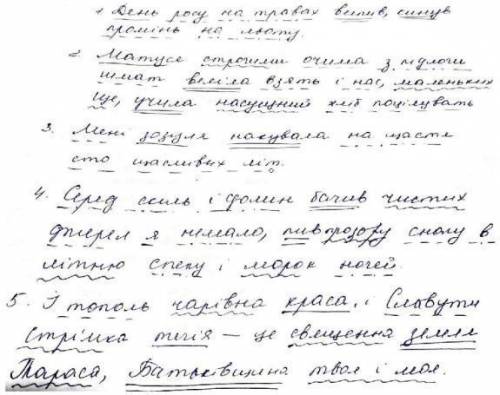 1. День росу на травах випив, синув
промінь на м'яту.
2. Матуся строгими очима з підлоги
шмат веліла взять і нас, маленьких
ще, учила насущний хліб поцілувать
3. Мені зозуля накувала на щастя
сто щасливих літ.
4. Серед скель і долин бачив чистих
джерел я немало, пив прозору снагу в
літню спеку і морок ночей.
5. І тополь чарівна краса, і Славути
стрімка течія — це священна земля
Тараса, Батьківщина твоя і моя.